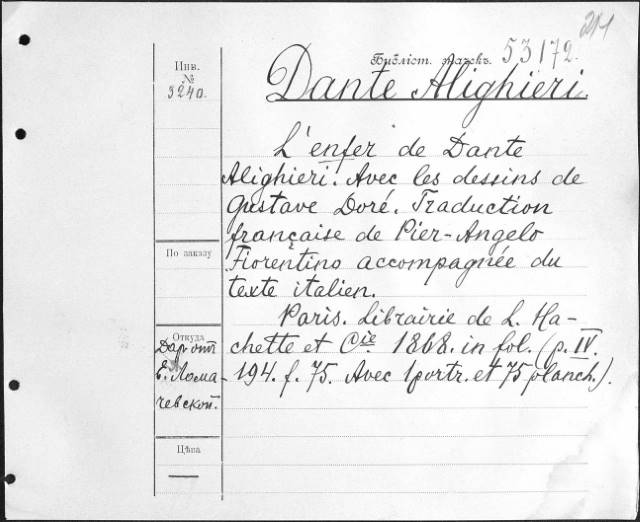 211
Библіот. значекъ 53172.
Инв.
№
3240.
Dante Alighieri.
L'enfer de Dante
Alighieri. Avec les dessins de
Gustave Doré. Traduction
française de Pier-Angelo
Fiorentino accompagnée du
texte italien.
Paris. Librairie de L. Ha-
chette et Cie 1868. in fol. (p. IV.
194. f. 75. Avec 1 portr. et 75 planch.).
По заказу
Откуда
Дар отъ
Е. Лома-
чевской.
Цѣна
—